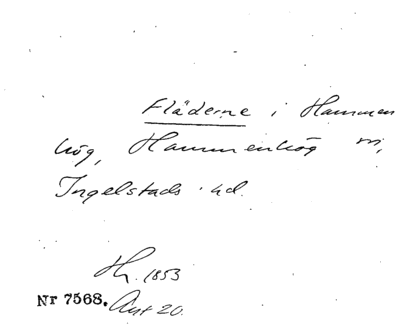 Fläderne i Hammen
hög, Hammenhög sn,
Ingelstads hd.
Hr. 1853
Nr 7568. Avst 20.